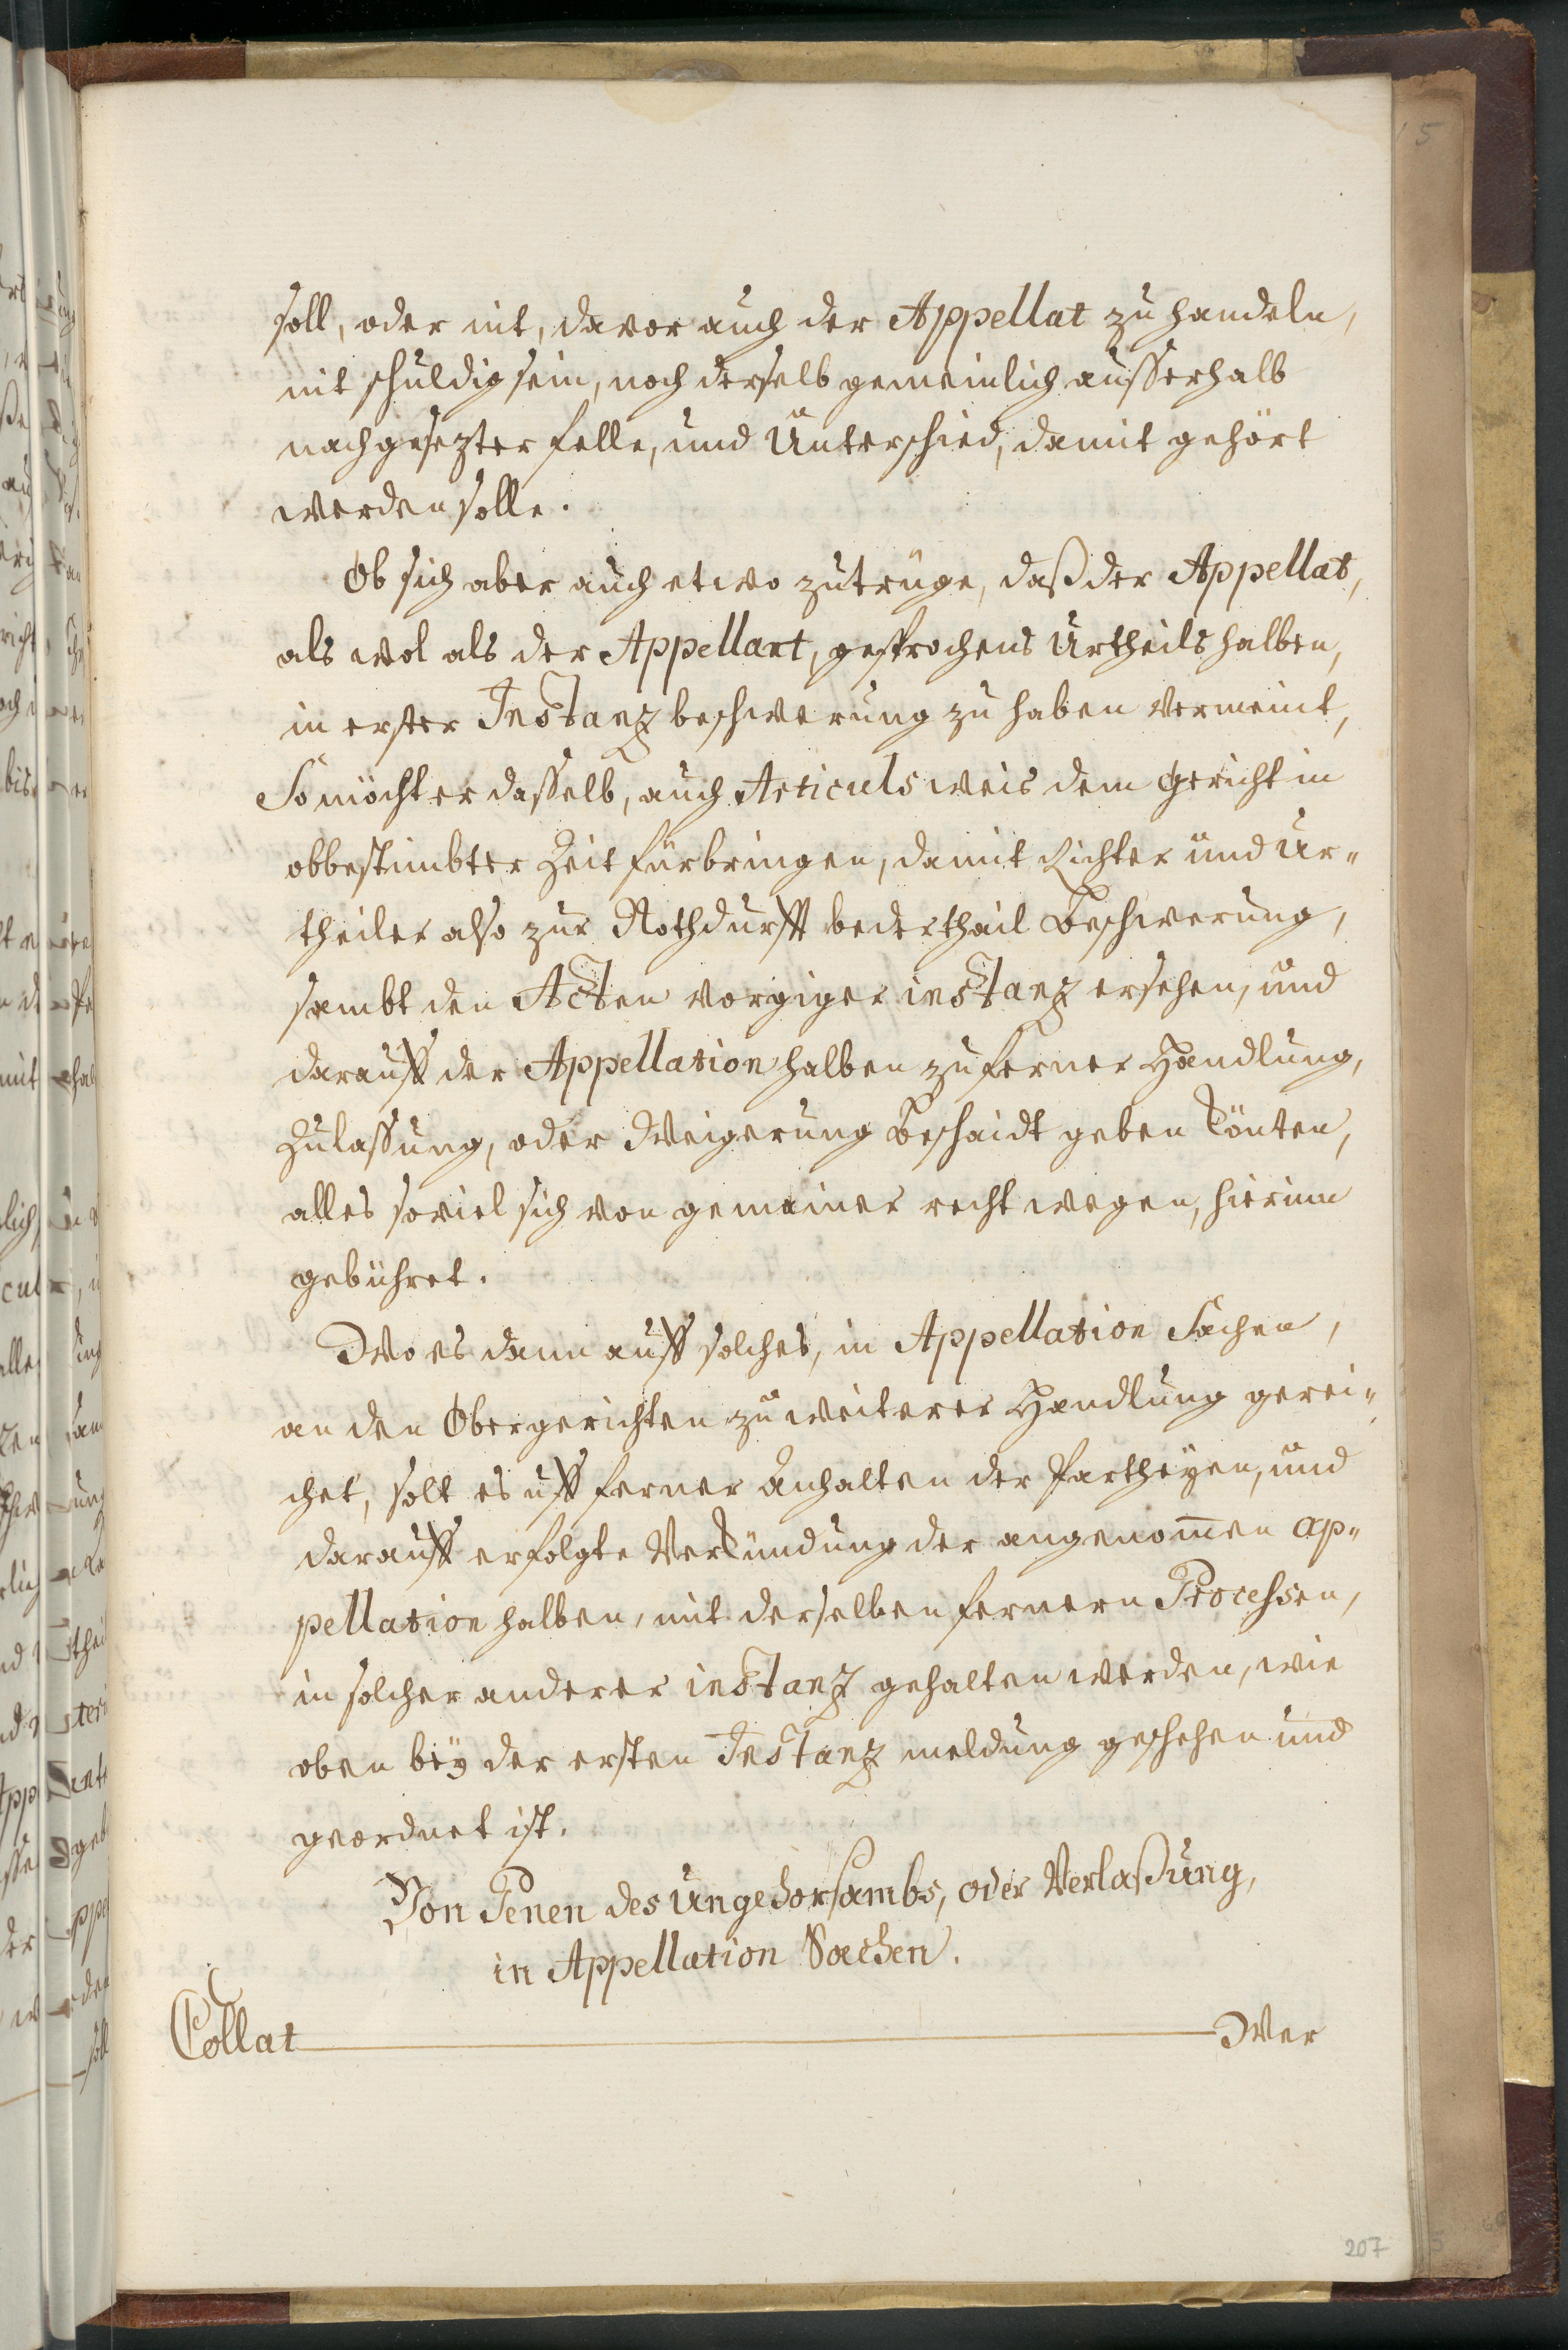 soll, oder nit, davor auch der Appellat zu handeln,
nit schuldig sein, noch derselb gemeinlich ausserhalb
nachgesezter felle, und Unterschied, damit gehört
werden solle.
Ob sich aber auch etwo zutrüge, daß der Appellat,
als wol als der Appellant, gesprochens Urtheils halben,
in erster Instanz beschwerung zu haben vermeint,
So möcht er dasselb, auch Articuls weis dem Gericht in
obbestimbter Zeit fürbringen, damit Richter und Ur„
theiler also zur Nothdurfft bederthail Beschwerung,
sambt den Acten voriger instanz ersehen, und
darauff der Appellation halben zu ferner Handlung,
Zulassung, oder Weigerung Beschaidt geben könten,
alles soviel sich von gemainer recht wegen, hierinn
gebühret.
Wo es dann auff solches, in Appellation Sachen,
an den Obergerichten zu weiterer Handlung gerei„
chet, solt es uff ferner Anhalten der Partheyen, und
darauff erfolgte Verkündung der angenom̄en ap„
pellation halben, mit derselben fernern Processen,
in solcher anderer instanz gehalten werden, wie
oben bey der ersten Instanz meldung geschehen und
geordnet ist.
Von Penen des Ungehorsambs, oder Verlaßung,
in Appellation Sachen.
Collat
Wer
207